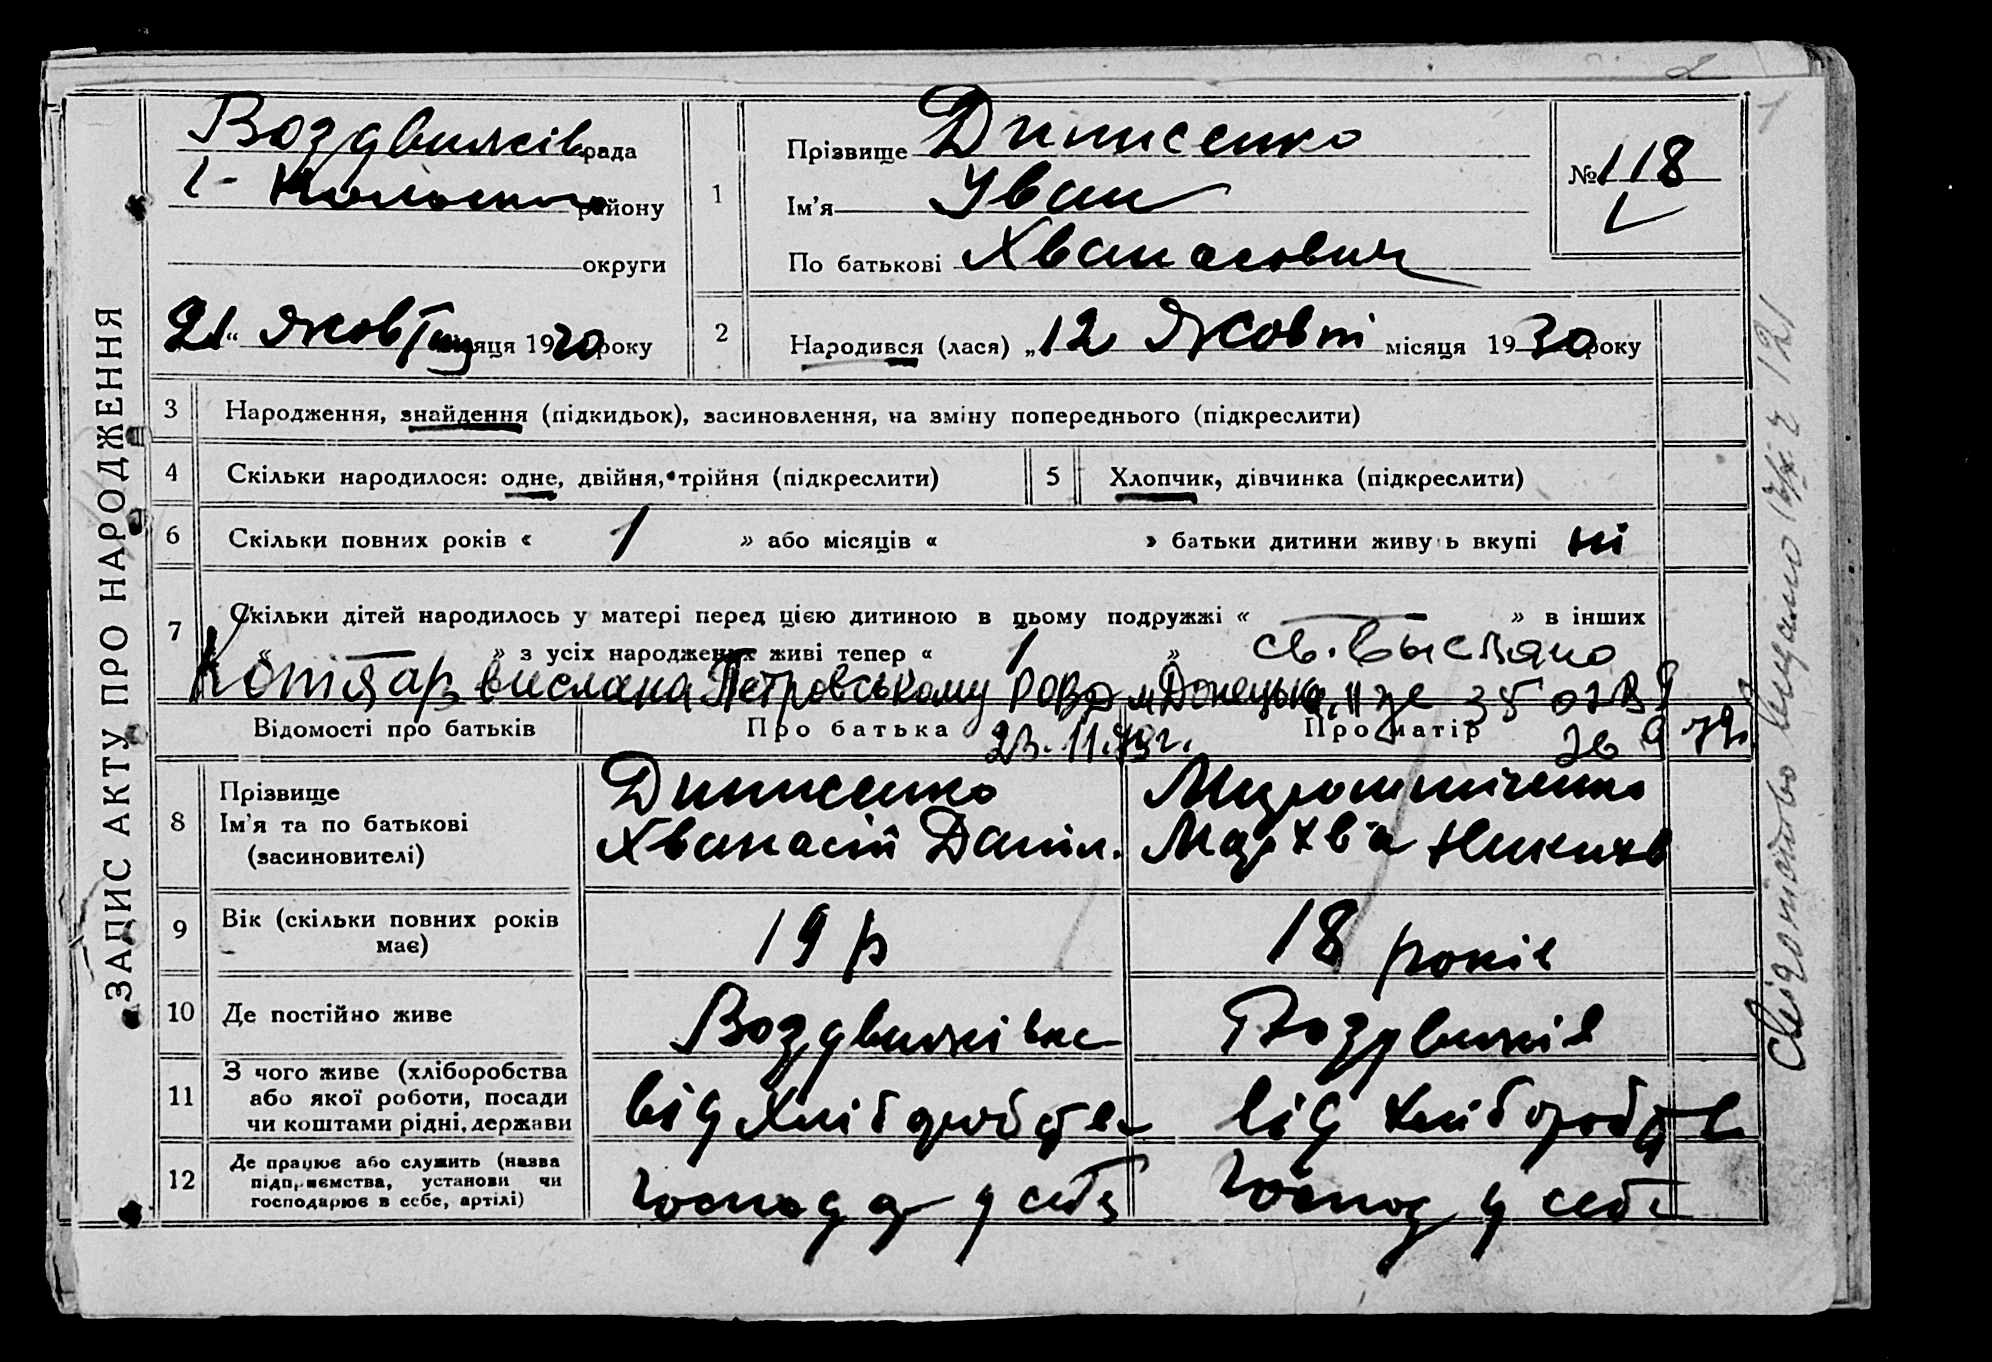 ЗАПИС АКТУ ПРО НАРОДЖЕННЯ
Воздвижків рада
району
округи
21 “ Жовтня місяця 1930 року
1
Прізвище Динисенко
Ім’я Уван
По батькові Хванасович
№ 118
2
Народився (лася) „12 Жовт місяця 1930 року
3 Народження, знайдення (підкидьок), засиновлення, на зміну попереднього (підкреслити)
4 Скільки народилося: одне, двійня, трійня (підкреслити)
5 Хлопчик, дівчинка (підкреслити)
6 Скільки повних років « 1 » або місяців « » батьки дитини живуть вкупі ні
7 Скільки дітей народилось у матері перед цією дитиною в цьому подружжі « — » в інших
« — » з усіх народжених живі тепер « 1 » св. Выслано
вислана Петровському РОВД м Донецька
23.11.
Відомості про батьків
Про батька
Про матір
8 Прізвище
Ім’я та по батькові
(засиновителі)
Динисенко
Хванасій Даніл.
Мирошниченко
Мархва
9 Вік (скільки повних років
має)
19 р
18 років
10 Де постійно живе
Воздвижівка
Воздвижів
11 З чого живе (хліборобства
або якої роботи, посади
чи коштами рідні, держави
від хліборобств
від хліборобств
12 Де працює або служить (назва
підприємства, установи чи
господарює в себе, артілі)
господар у себе
господ у себе